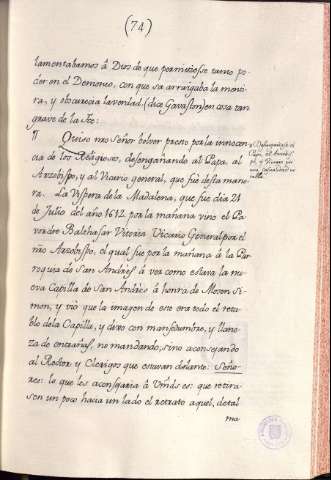 (74)
lamentabamos à Dios de que permitiesse tanto po-
der en el Demonio, con que sa arraigaba la menti-
ra, y obscurecia la verdad. (dice Gavaston) en cosa tan
grave de la Fe:
¶ Quiso nro Señor bolver presto por la innocen-
cia de los Religiosos, desengañando al Papa, al
Arzobispo, y al Vicario general, que fue desta mane-
ra. La Vispera de la Madalena, que fue dia 21
de Julio del año 1612. por la mañana vino el Pa-
vordre Balthasar Vitoria Vicario General por el
nro Arzobispo, el qual fue por la mañana à la Par-
roquia de San Andrés à vez como estava la nu-
eva Capilla de San Andrés à honra de Mosen Si-
mon, y viò que la imagen de este era todo el reta-
blo de la Capilla, y dixo con mansedumbre, y llane-
za de entrañas, no mandando, sino aconsejando
al Rector y Clerigos que estavan delante: Seño-
res: lo que les aconsejaria à Vmds es: que retira-
sen un poco hacia un lado el retrato aquel, de tal
ma
y Desengañase el
Papa, el Arzobis-
po, y Vicario